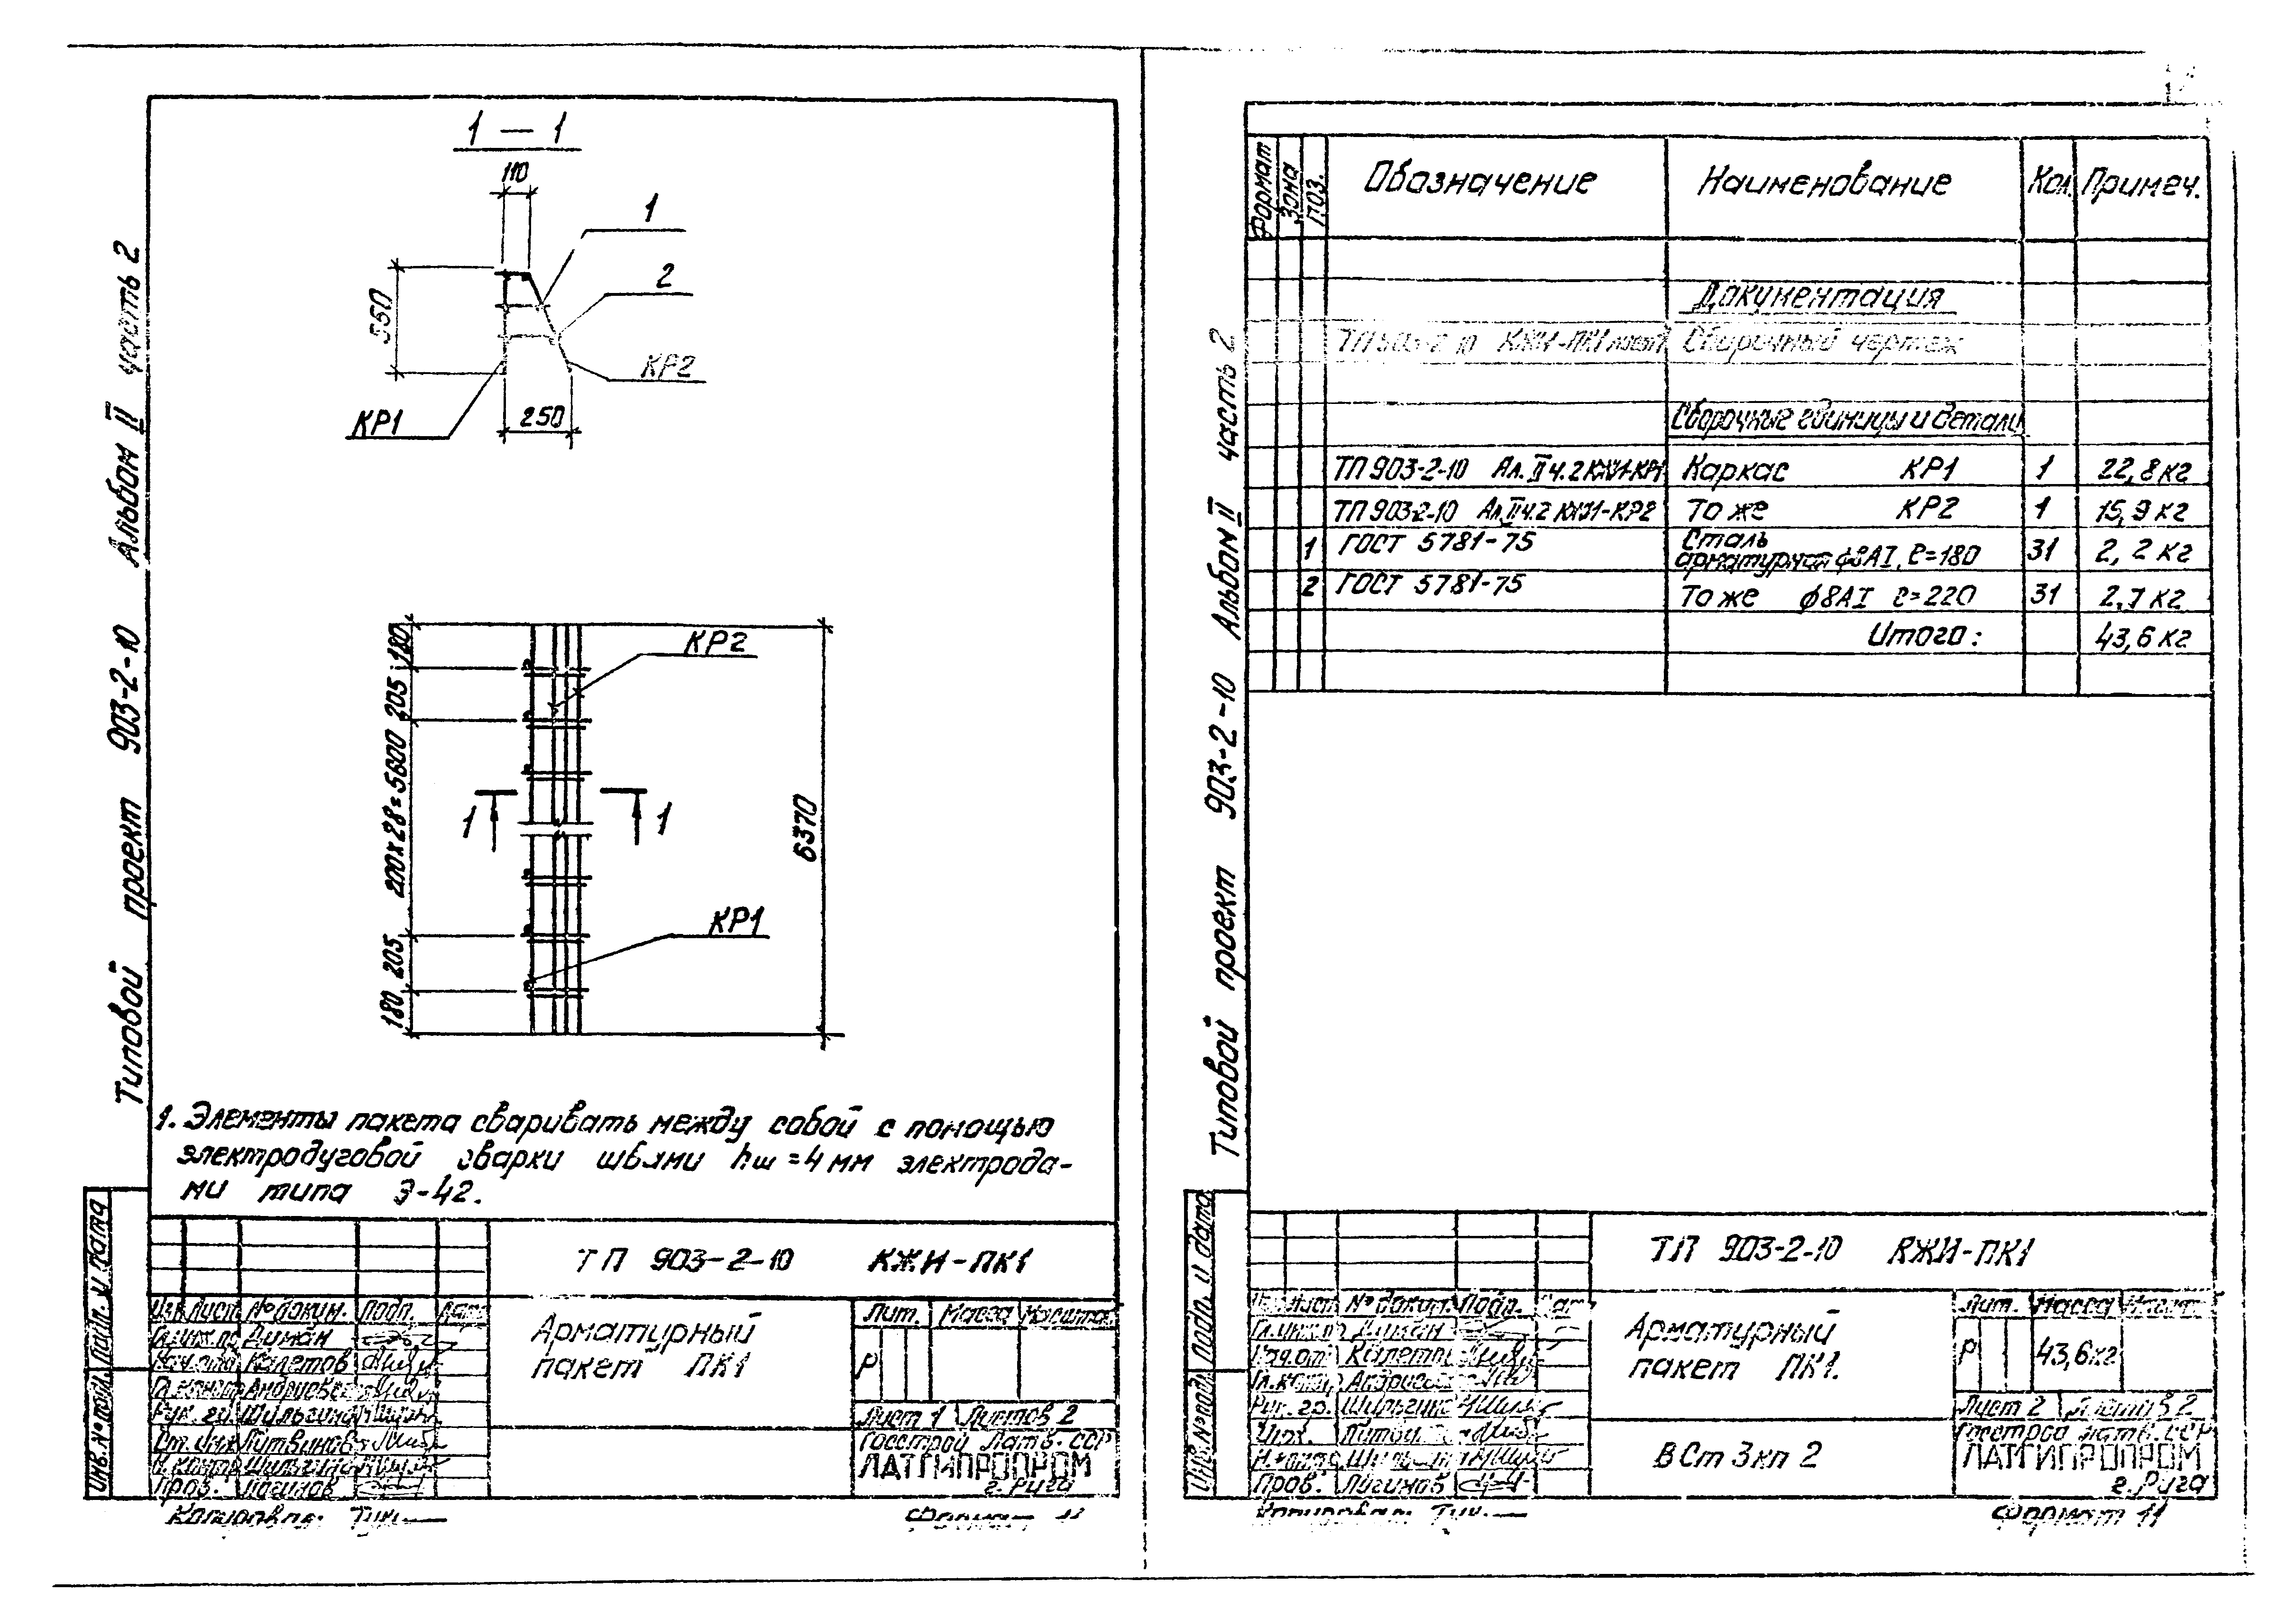 Типовой проект 903-2-10 Альбом II часть 2
1 — 1
110
1
2
550
КР2
КР1
250
180
205
200х28=5600
205
180
КР2
1
1
6370
КР1
1. Элементы пакета сваривать между собой с помощью
электродуговой сварки швами hш=4мм электрода-
ми типа Э-42.
ТП 903-2-10 КЖИ-ПК1
Изм Лист №докум. Подп. Дата
Гл.инж.пр Думан
Нач.отд Калетов
Гл.конст
Рук.гр. Шильгина
Ст.инж Литвинов
Н.контр Шильгина
Пров. Логинов
Арматурный
пакет ПК1
Лит. Масса Масштаб
Р
Лист 1 Листов 2
Госстрой Латв. ССР
ЛАТГИПРОПРОМ
г.Рига
Инв.№подл. Подп. и дата
Копировал:
Формат 11
Типовой проект 903-2-10 Альбом II часть 2
Формат Зона Поз. Обозначение Наименование Кол. Примеч.
Документация
Сборочный чертеж
Сборочные единицы и детали
ТП 903-2-10 Ал. II ч.2 КЖИ-КР1 Каркас КР1 1 22,8кг
ТП 903-2-10 Ал. II ч.2 КЖИ-КР2 То же КР2 1 15,9кг
1 ГОСТ 5781-75 Сталь
арматурная ф8АI, ℓ=180 31 2,2кг
2 ГОСТ 5781-75 То же ф8АI ℓ=220 31 2,7кг
Итого: 43,6кг
ТП 903-2-10 КЖИ-ПК1
Лист №докум. Подп.
Гл.инж.п Думан
Нач.от
Гл.констр
Рук.гр. Шильгина
Инж.
Н.контр
Пров. Логинов
Арматурный
пакет ПК1.
ВСт 3кп 2
Лит. Масса
Р 43,6кг
Лист 2 Листов 2
Госстрой Латв. ССР
ЛАТГИПРОПРОМ
г.Рига
Инв.№подл. Подп. и дата
Копировал:
Формат 11